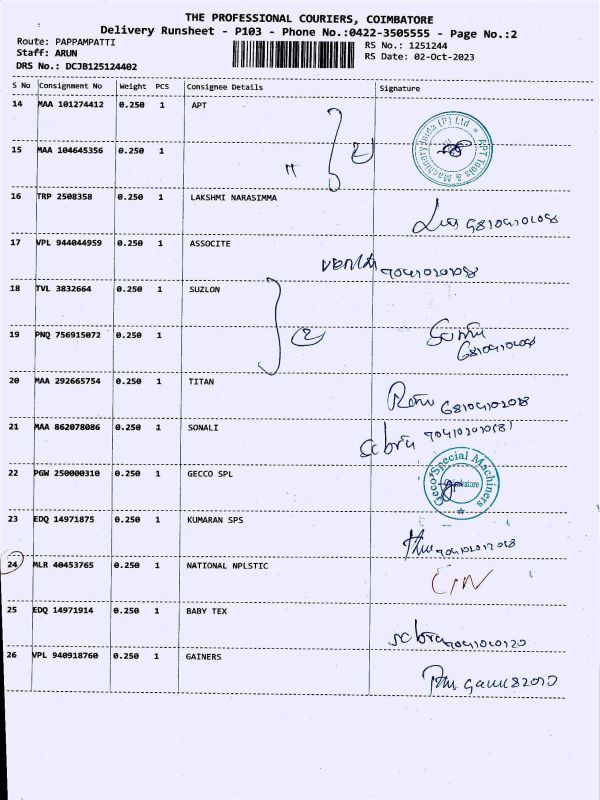 THE PROFESSIONAL COURIERS, COIMBATORE
Delivery Runsheet - P103 - Phone No.:0422-3505555 - Page No.:2
Route: PAPPAMPATTI RS No.: 1251244
Staff: ARUN RS Date: 02-Oct-2023
DRS No.: DCJB125124402
S No Consignment No Weight PCS Consignee Details Signature
14 MAA 101274412 0.250 1 APT
15 MAA 104645356 0.250 1 "
2
APT Tools & Machinery India (P) Ltd
16 TRP 2508358 0.250 1 LAKSHMI NARASIMMA
17 VPL 944044959 0.250 1 ASSOCITE
18 TVL 3832664 0.250 1 SUZLON
19 PNQ 756915072 0.250 1
2
20 MAA 292665754 0.250 1 TITAN
21 MAA 862078086 0.250 1 SONALI
22 PGW 250000310 0.250 1 GECCO SPL
Geco Special Machiners
Coimbatore
23 EDQ 14971875 0.250 1 KUMARAN SPS
24 MLR 40453765 0.250 1 NATIONAL NPLSTIC
25 EDQ 14971914 0.250 1 BABY TEX
26 VPL 940918760 0.250 1 GAINERS